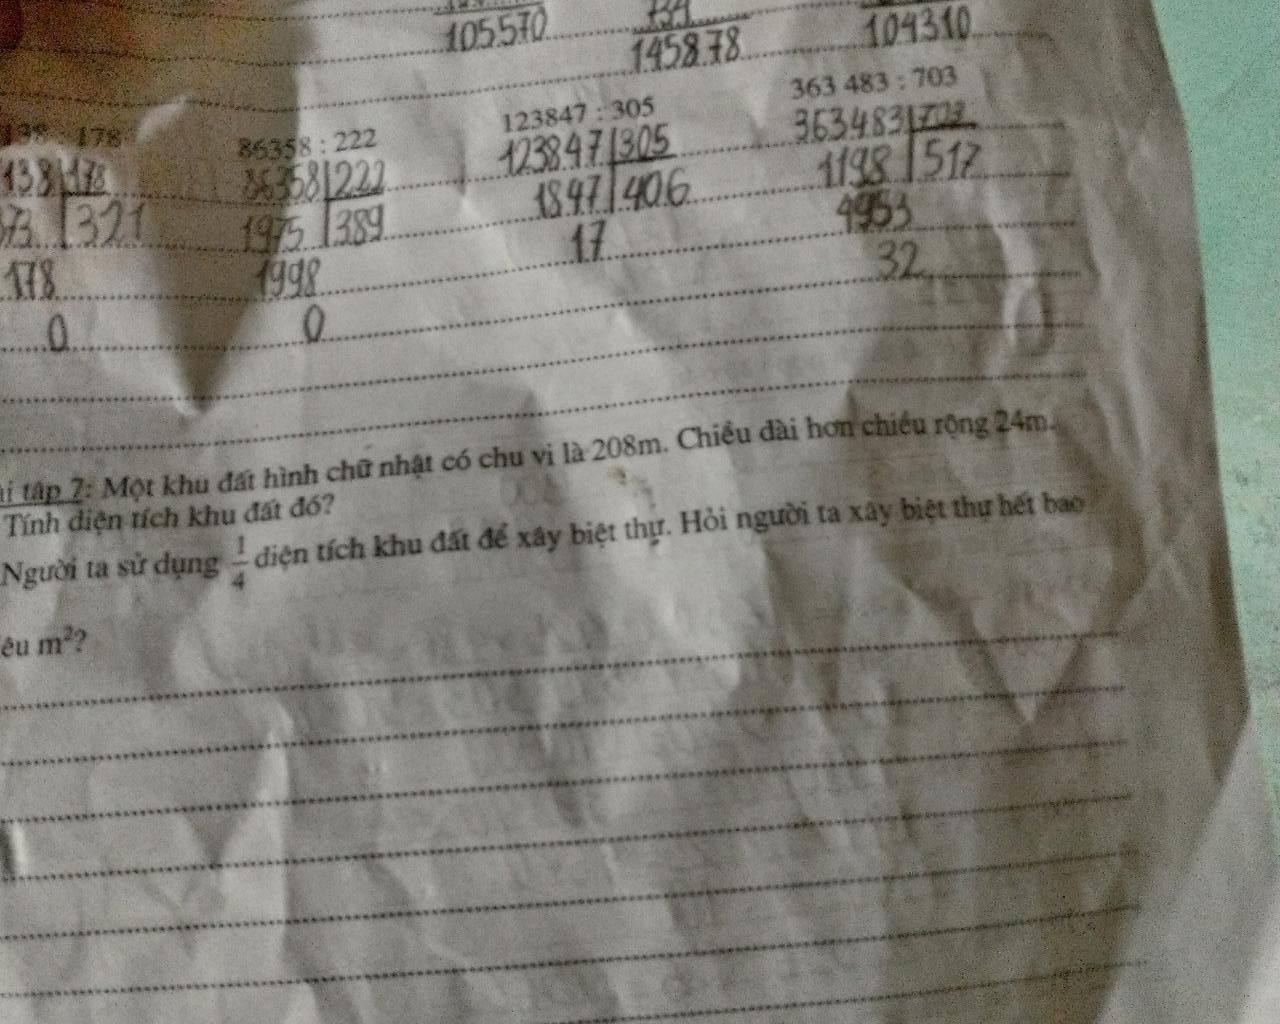 105570 145878 104310
178 86358 : 222 123847 : 305 363 483 : 703
138 178 86358 222 123847 305 363483 703
73 321 1975 389 1847 406 1198 517
178 1998 17 4953
0 0 32
tập 7: Một khu đất hình chữ nhật có chu vi là 208m. Chiều dài hơn chiều rộng 24m.
Tính diện tích khu đất đó?
Người ta sử dụng 1/4 diện tích khu đất để xây biệt thự. Hỏi người ta xây biệt thự hết bao
êu m²?